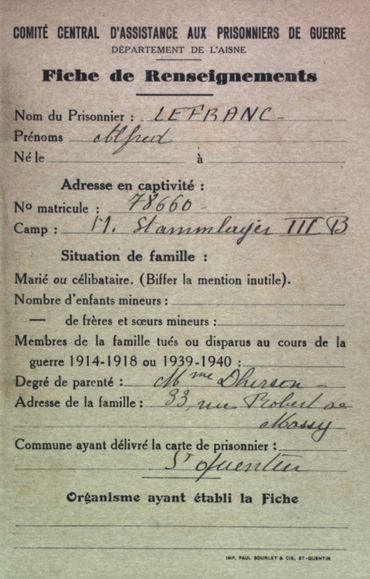 COMITÉ CENTRAL D'ASSISTANCE AUX PRISONNIERS DE GUERRE
DÉPARTEMENT DE L'AISNE
Fiche de Renseignements
Nom du Prisonnier : LEFRANC -
Prénoms Alfred
Né le à
Adresse en captivité :
No matricule : 78660 -
Camp : M. Stammlager III B
Situation de famille :
Marié ou célibataire. (Biffer la mention inutile).
Nombre d'enfants mineurs :
— de frères et sœurs mineurs :
Membres de la famille tués ou disparus au cours de la
guerre 1914-1918 ou 1939-1940 :
Degré de parenté : Mme
Adresse de la famille : 33, rue Robert de
Massy
Commune ayant délivré la carte de prisonnier :
St Quentin
Organisme ayant établi la Fiche
IMP. PAUL BOURLET & CIE, ST-QUENTIN